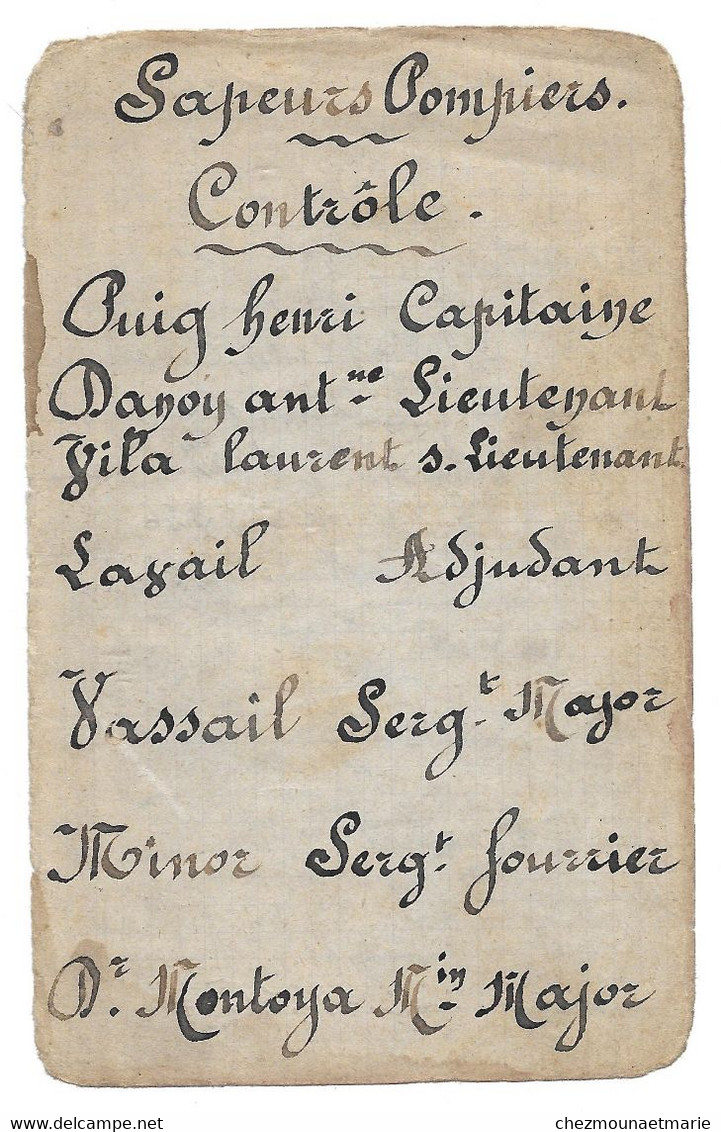 Sapeurs Pompiers.
Contrôle.
Puig henri Capitaine
Danoy ant.ne Lieutenant
Vila laurent s. Lieutenant
Lavail Adjudant
Vassail Serg.t Major
Minor Serg.t fourrier
Dr. Montoya Min. Major
chezmounaetmarie